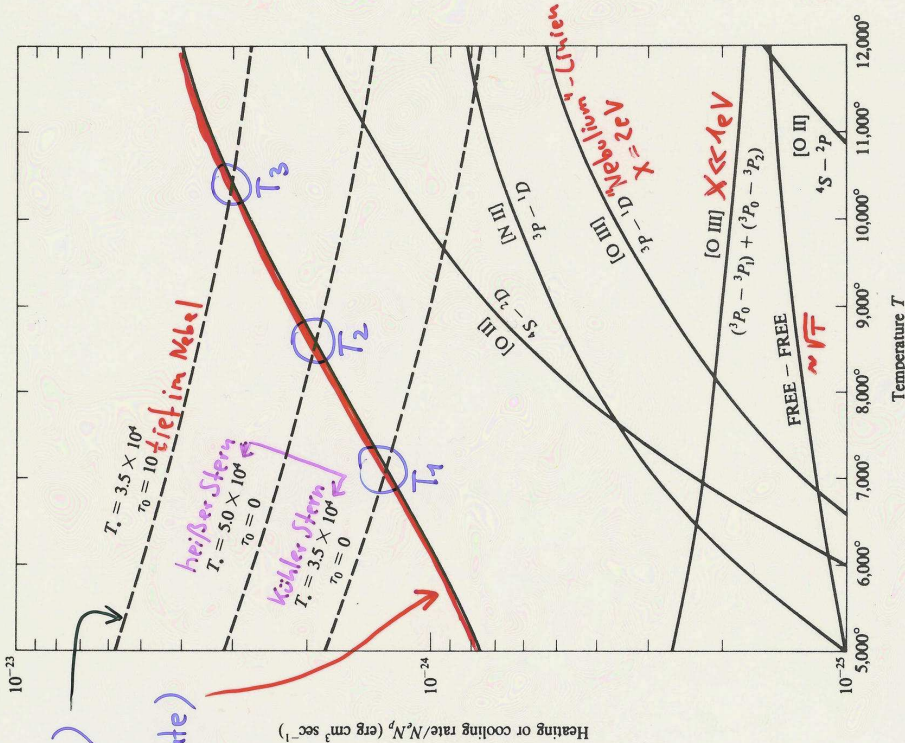 10⁻²³
10⁻²⁴
10⁻²⁵
Heating or cooling rate/NₑNₚ (erg cm³ sec⁻¹)
)
ate)
T* = 3.5 × 10⁴
τ₀ = 10
tief im Nebel
heißer Stern
T* = 5.0 × 10⁴
τ₀ = 0
Kühler Stern
T* = 3.5 × 10⁴
τ₀ = 0
T₁
T₂
T₃
[O II]
⁴S – ²D
[N II]
³P – ¹D
[O III]
³P – ¹D
"Nebulium"-Linien
X = 2eV
[O III]
X << 1eV
(³P₀ – ³P₁) + (³P₀ – ³P₂)
FREE – FREE
~√T
[O II]
⁴S – ²P
5,000° 6,000° 7,000° 8,000° 9,000° 10,000° 11,000° 12,000°
Temperature T